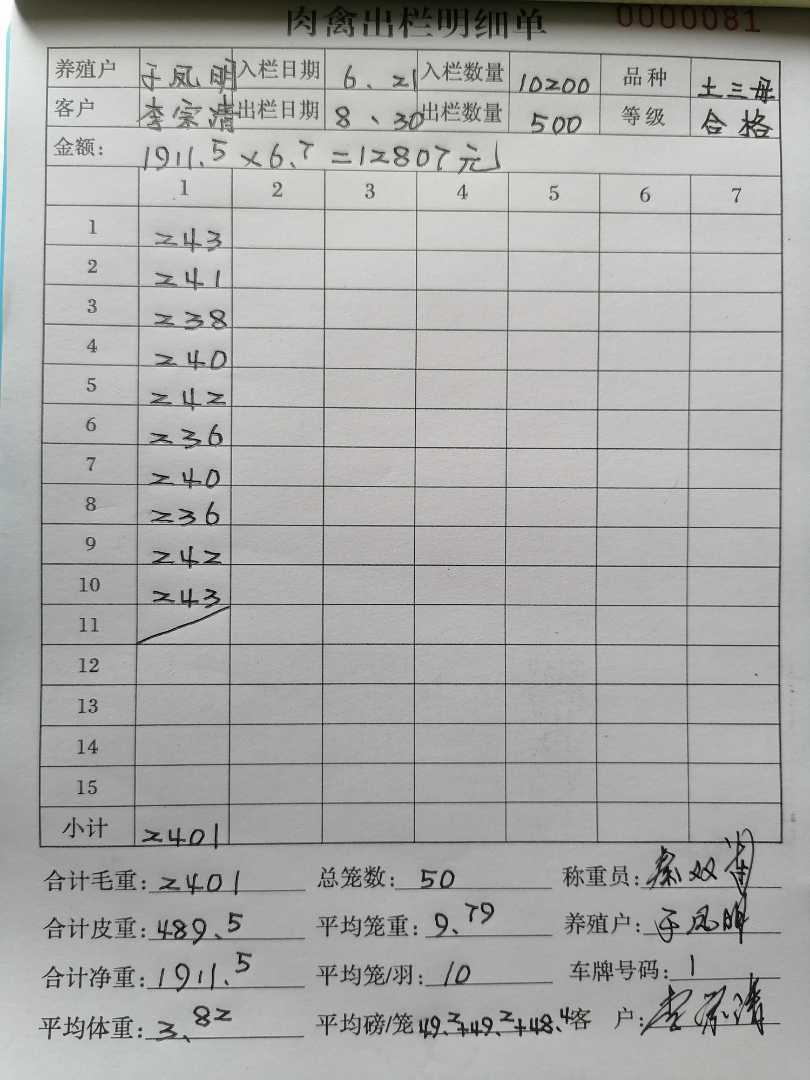 肉禽出栏明细单 0000081
养殖户 于凤明 入栏日期 6、21 入栏数量 10200 品种 土三母
客户 李宗清 出栏日期 8、30 出栏数量 500 等级 合格
金额: 1911.5×6.7=12807元
1 2 3 4 5 6 7
1 243
2 241
3 238
4 240
5 242
6 236
7 240
8 236
9 242
10 243
11
12
13
14
15
小计 2401
合计毛重: 2401 总笼数: 50 称重员: 秦双
合计皮重: 489.5 平均笼重: 9.79 养殖户: 于凤明
合计净重: 1911.5 平均笼/羽: 10 车牌号码: 1
平均体重: 3.82 平均磅/笼 49.2+49.2+48.4 客 户: 李宗清